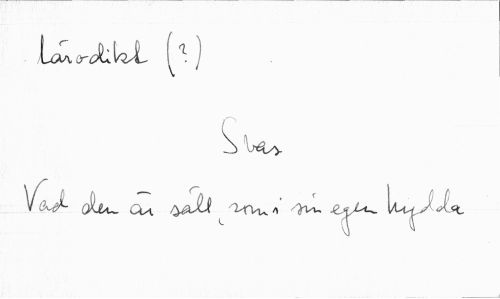 Lärodikt (?)
Svas
Vad den är säll, som i sin egen hydda